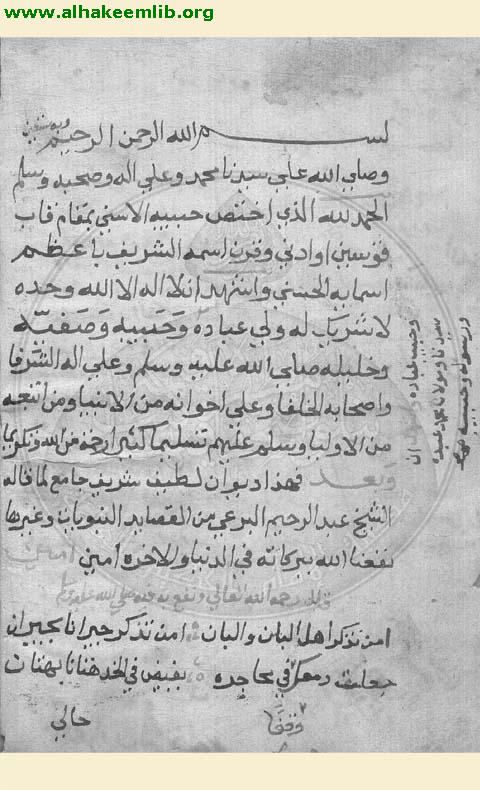 www.alhakeemlib.org
بسم الله الرحمن الرحيم وبه نستعين
وصلي الله علي سيدنا محمد وعلي اله وصحبه وسلم
الحمد لله الذي اختص حبيبه الاسني بمقام قاب
قوسين او ادني وقرن اسمه الشريف باعظم
اسمايه الحسني واشهد ان لا اله الا الله وحده
لا شريك له ولي عباده وحبيبه وصفيه
وخليله صلي الله عليه وسلم وعلي اله الشرفا
واصحابه الخلفا وعلي اخوانه من الانبيا ومن اتبعه
من الاوليا وسلم عليهم تسليما كثيرا
وبعد فهذا ديوان لطيف شريف جامع لما قاله
الشيخ عبد الرحيم البرعي من القصايد النبويات وغيرها
نفعنا الله ببركاته في الدنيا والاخره امين
قال رحمه الله تعالي ونفع به
امن تذكر اهل البان والبان امن تذكر جيرانا بجيران
جعلت دمعك في محاجره يفيض في الخد هتانا بهتان
وقفا
حالي
سيدنا ومولانا محمد عبده
ورسوله وحبيبه